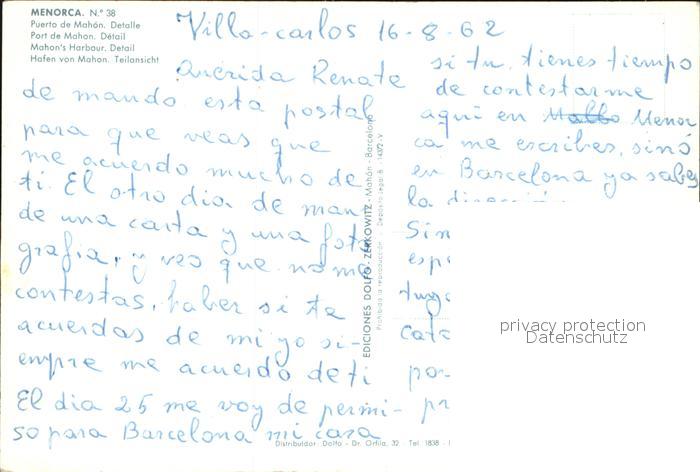 MENORCA. N.º 38
Puerto de Mahón. Detalle
Port de Mahon. Détail
Mahon's Harbour. Detail
Hafen von Mahon. Teilansicht
Villa-carlos 16-8-62
Querida Renate
de mando esta postal
para que veas que
me acuerdo mucho de
ti. El otro dia de man
de una carta y una foto
grafia, y veo que no me
contestas, haber si te
acuerdas de mi yo si-
empre me acuerdo de ti
El dia 25 me voy de permi-
so para Barcelona mi casa
si tu tienes tiempo
de contestarme
aqui en Menor
ca me escribes, sinó
en Barcelona ya sabes
la
Sin
espe
tuya
cata
por-
pr
EDICIONES DOLFO-ZERKOWITZ - Mahón - Barcelona
Prohibida la reproducción - Depósito legal B.
Distribuidor: Dolfo - Dr. Orfila, 32 - Tel. 1838 -
privacy protection
Datenschutz